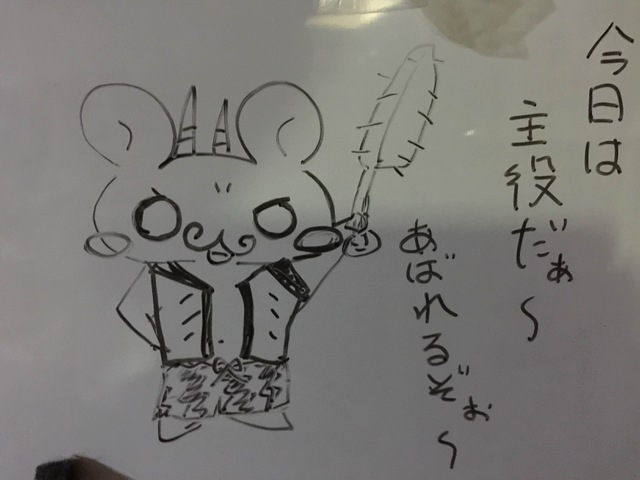 今日は
主役だぁ〜
あばれるぞぉ〜